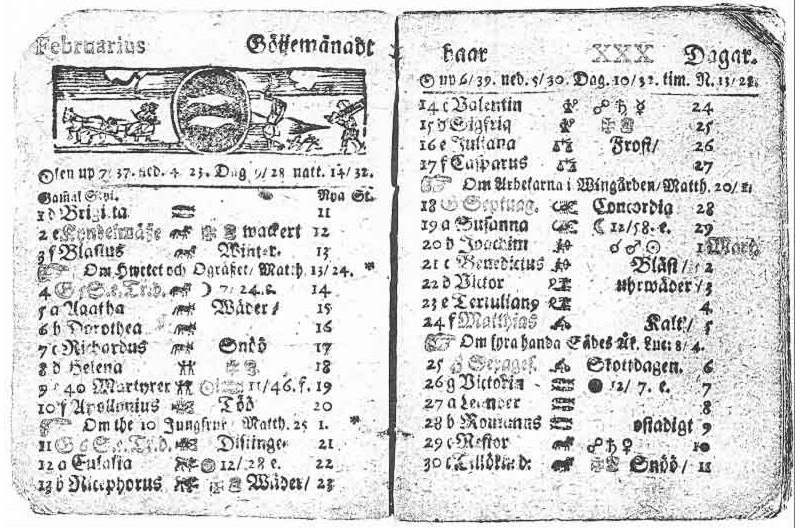 Februarius Göijemånadt
Solen up 7/37. ned. 4 23. Dag 9/28 natt. 14/32.
Gamal Styl. Nya St.
1 d Brigitta 11
2 e Kyndelmässe wackert 12
3 f Blasius Winter. 13
Om Hwetet och Ogräset/ Matth. 13/24. *
4 G 5 S. e. Tr. d. 7/24. e. 14
5 a Agatha Wäder/ 15
6 b Dorothea 16
7 c Richardus Snöö 17
8 d Helena 18
9 e 40 Martyrer 11/46. f. 19
10 f Apollonius Töö 20
Om the 10 Jungfrur Matth. 25 1. *
11 G 6 S. e. Tr. d. Distinge 21
12 a Eulalia 12/28 e. 22
13 b Nicephorus Wäder/ 23
haar XXX Dagar.
up 6/39. ned. 5/30. Dag. 10/32. tim. N. 13/28.
14 c Valentin 24
15 d Sigfrid 25
16 e Juliana Frost/ 26
17 f Casparus 27
Om Arbetarna i Wingården/ Matth. 20/1.
18 G Septuag. Concordia 28
19 a Susanna 12/58. e. 29
20 b Joachim 1 Mart.
21 c Benedictus Blåst/ 2
22 d Victor uhrwäder/ 3
23 e Tertulianus 4
24 f Matthias Kalt/ 5
Om fyra handa Sädes Åk. Luc: 8/4.
25 G Sexages. Skottdagen. 6
26 g Victoria 12/7. e. 7
27 a Leander 8
28 b Romanus ostadigt 9
29 c Nestor 10
30 d Snöö/ 11